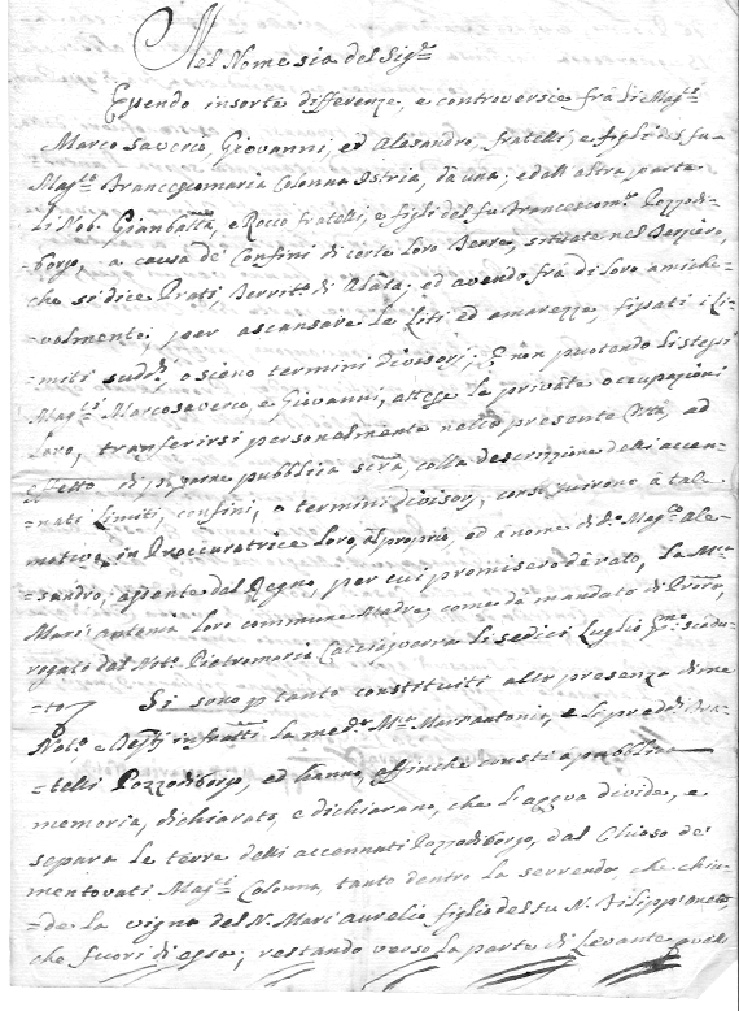 Nel Nome sia del Sig.re
Essendo insorte differenze, e controversie frà li Mag.ci
Marco Saverio, Giovanni, ed Alesandro, fratelli, e figli del fu
Mag.co Francescomaria Colonna Istria, da una; e dall'altra parte
Li Nob. Gianbatta, e Rocco fratelli, e figli del fu Francescom.a Pozzodi-
=borgo, a causa de' Confini di certe Loro Terre, situate nel
che si dice Prati, Territ.o di Alata; ed avendo frà di loro amiche-
=volmente, per scansare le Liti ed amarezze, fissati i Li-
=miti sudd.i, o siano termini divisorj; E non puotendo li stessi
Mag.ci Marcosaverio, e Giovanni, attese le private occupazioni
Loro, transferirsi personalmente nella presente Città, ad
effetto di pubblica scrã, colla descrizzione delli accen-
=nati Limiti, confini, o termini divisorj, à tal
motivo, in Proccuratrice Loro, al proprio, ed à nome di d.o Mag.co Ale-
=sandro, assente dal Regno, per cui promisero de rato, la M.ca
Mari'antonia Loro commune Madre, come da mandato di
rogato dal Not.o Pietromaria Cacciaguerra li sedici Luglio scadu-
=to
Si sono p tanto constituiti alla presenza di me
Not.o e Testj infratti la med.a M.ca Mariantonia, e li predd.i Fra-
=telli Pozzodiborgo, ed hanno, affinche consti a pubblica
memoria, dichiarato, e dichiarano, che l'acqua divide, e
separa le terre delli accennati Pozzodiborgo, dal Chioso de'
mentovati Mag.ci Colonna, tanto dentro la serrenda, che chiu-
=de la vigna del N. Mari'aurelio figlio del fu N. Filipp'
che fuori di essa; restando verso la parte di Levante